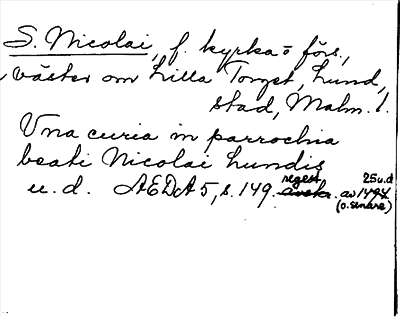 S. Nicolai, f. kyrka o förs.,
väster om Lilla Torget, Lund,
stad, Malm. l.
Una curia in parrochia
beati Nicolai Lundis
u. d. AEDA 5, s. 149. regest av 1494 25 u.d
(o. senare)